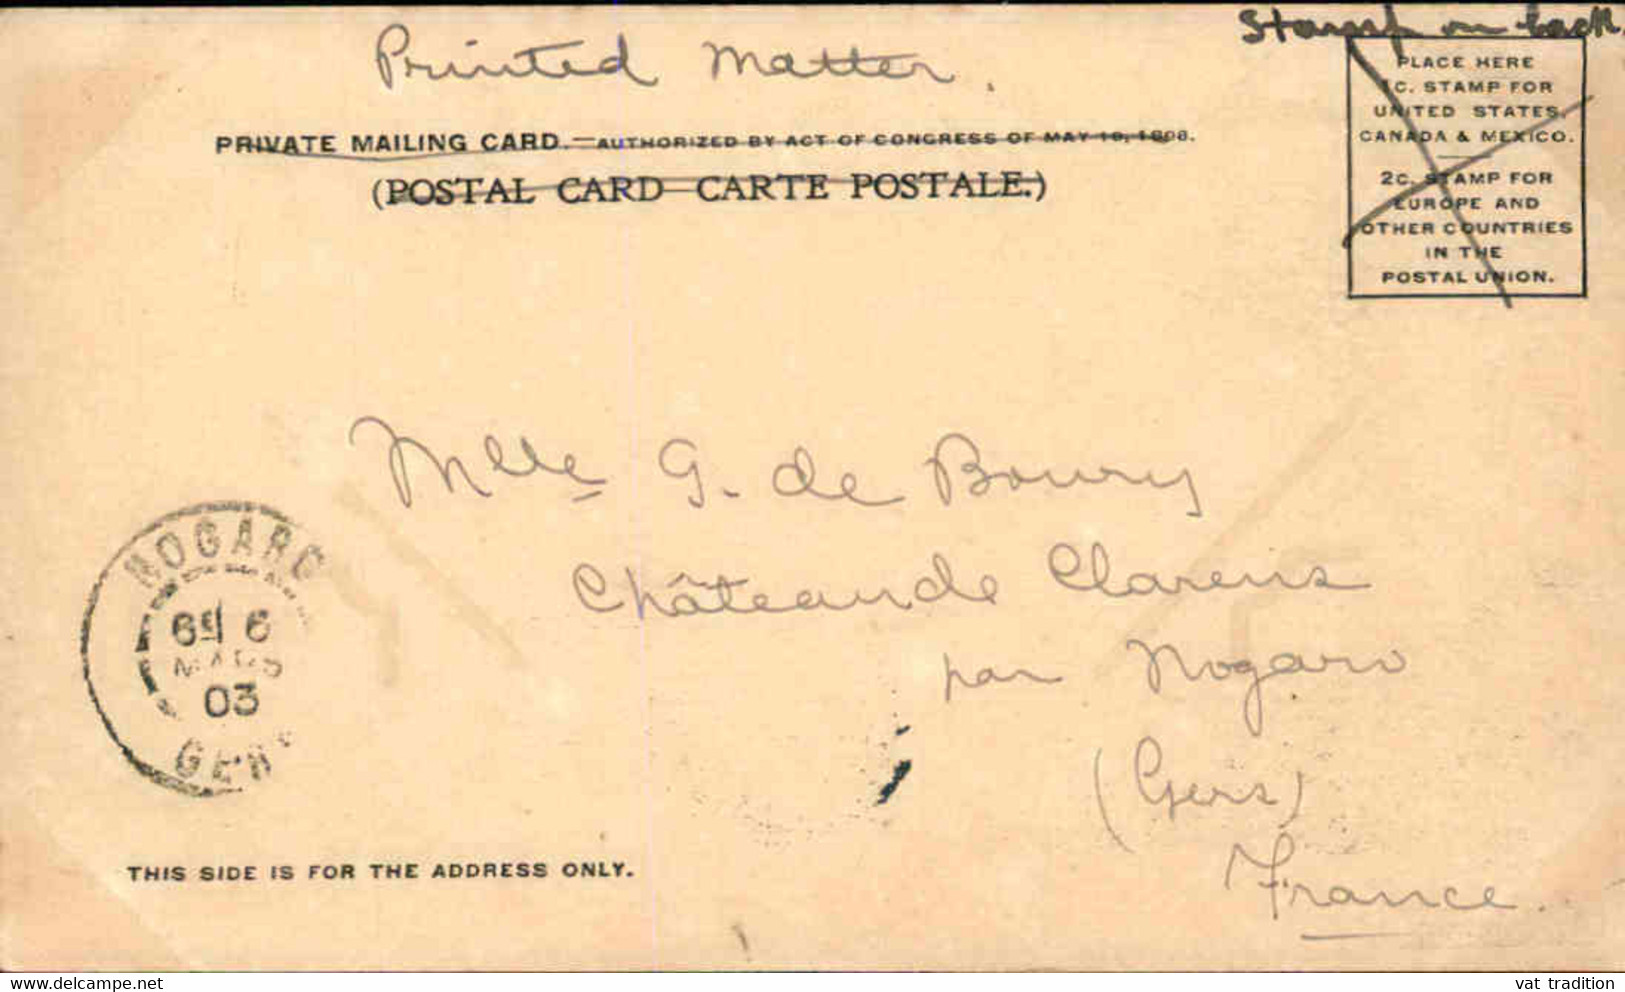 Stamp on back.
Printed Matter.
PRIVATE MAILING CARD.—AUTHORIZED BY ACT OF CONGRESS OF MAY 19, 1898.
(POSTAL CARD—CARTE POSTALE.)
PLACE HERE
1C. STAMP FOR
UNITED STATES,
CANADA & MEXICO.
2C. STAMP FOR
EUROPE AND
OTHER COUNTRIES
IN THE
POSTAL UNION.
Mlle G. de Boury
Château de Clarens
par Nogaro
(Gers)
France.
NOGARO
6E 6
MARS
03
GERS
THIS SIDE IS FOR THE ADDRESS ONLY.
vat tradition